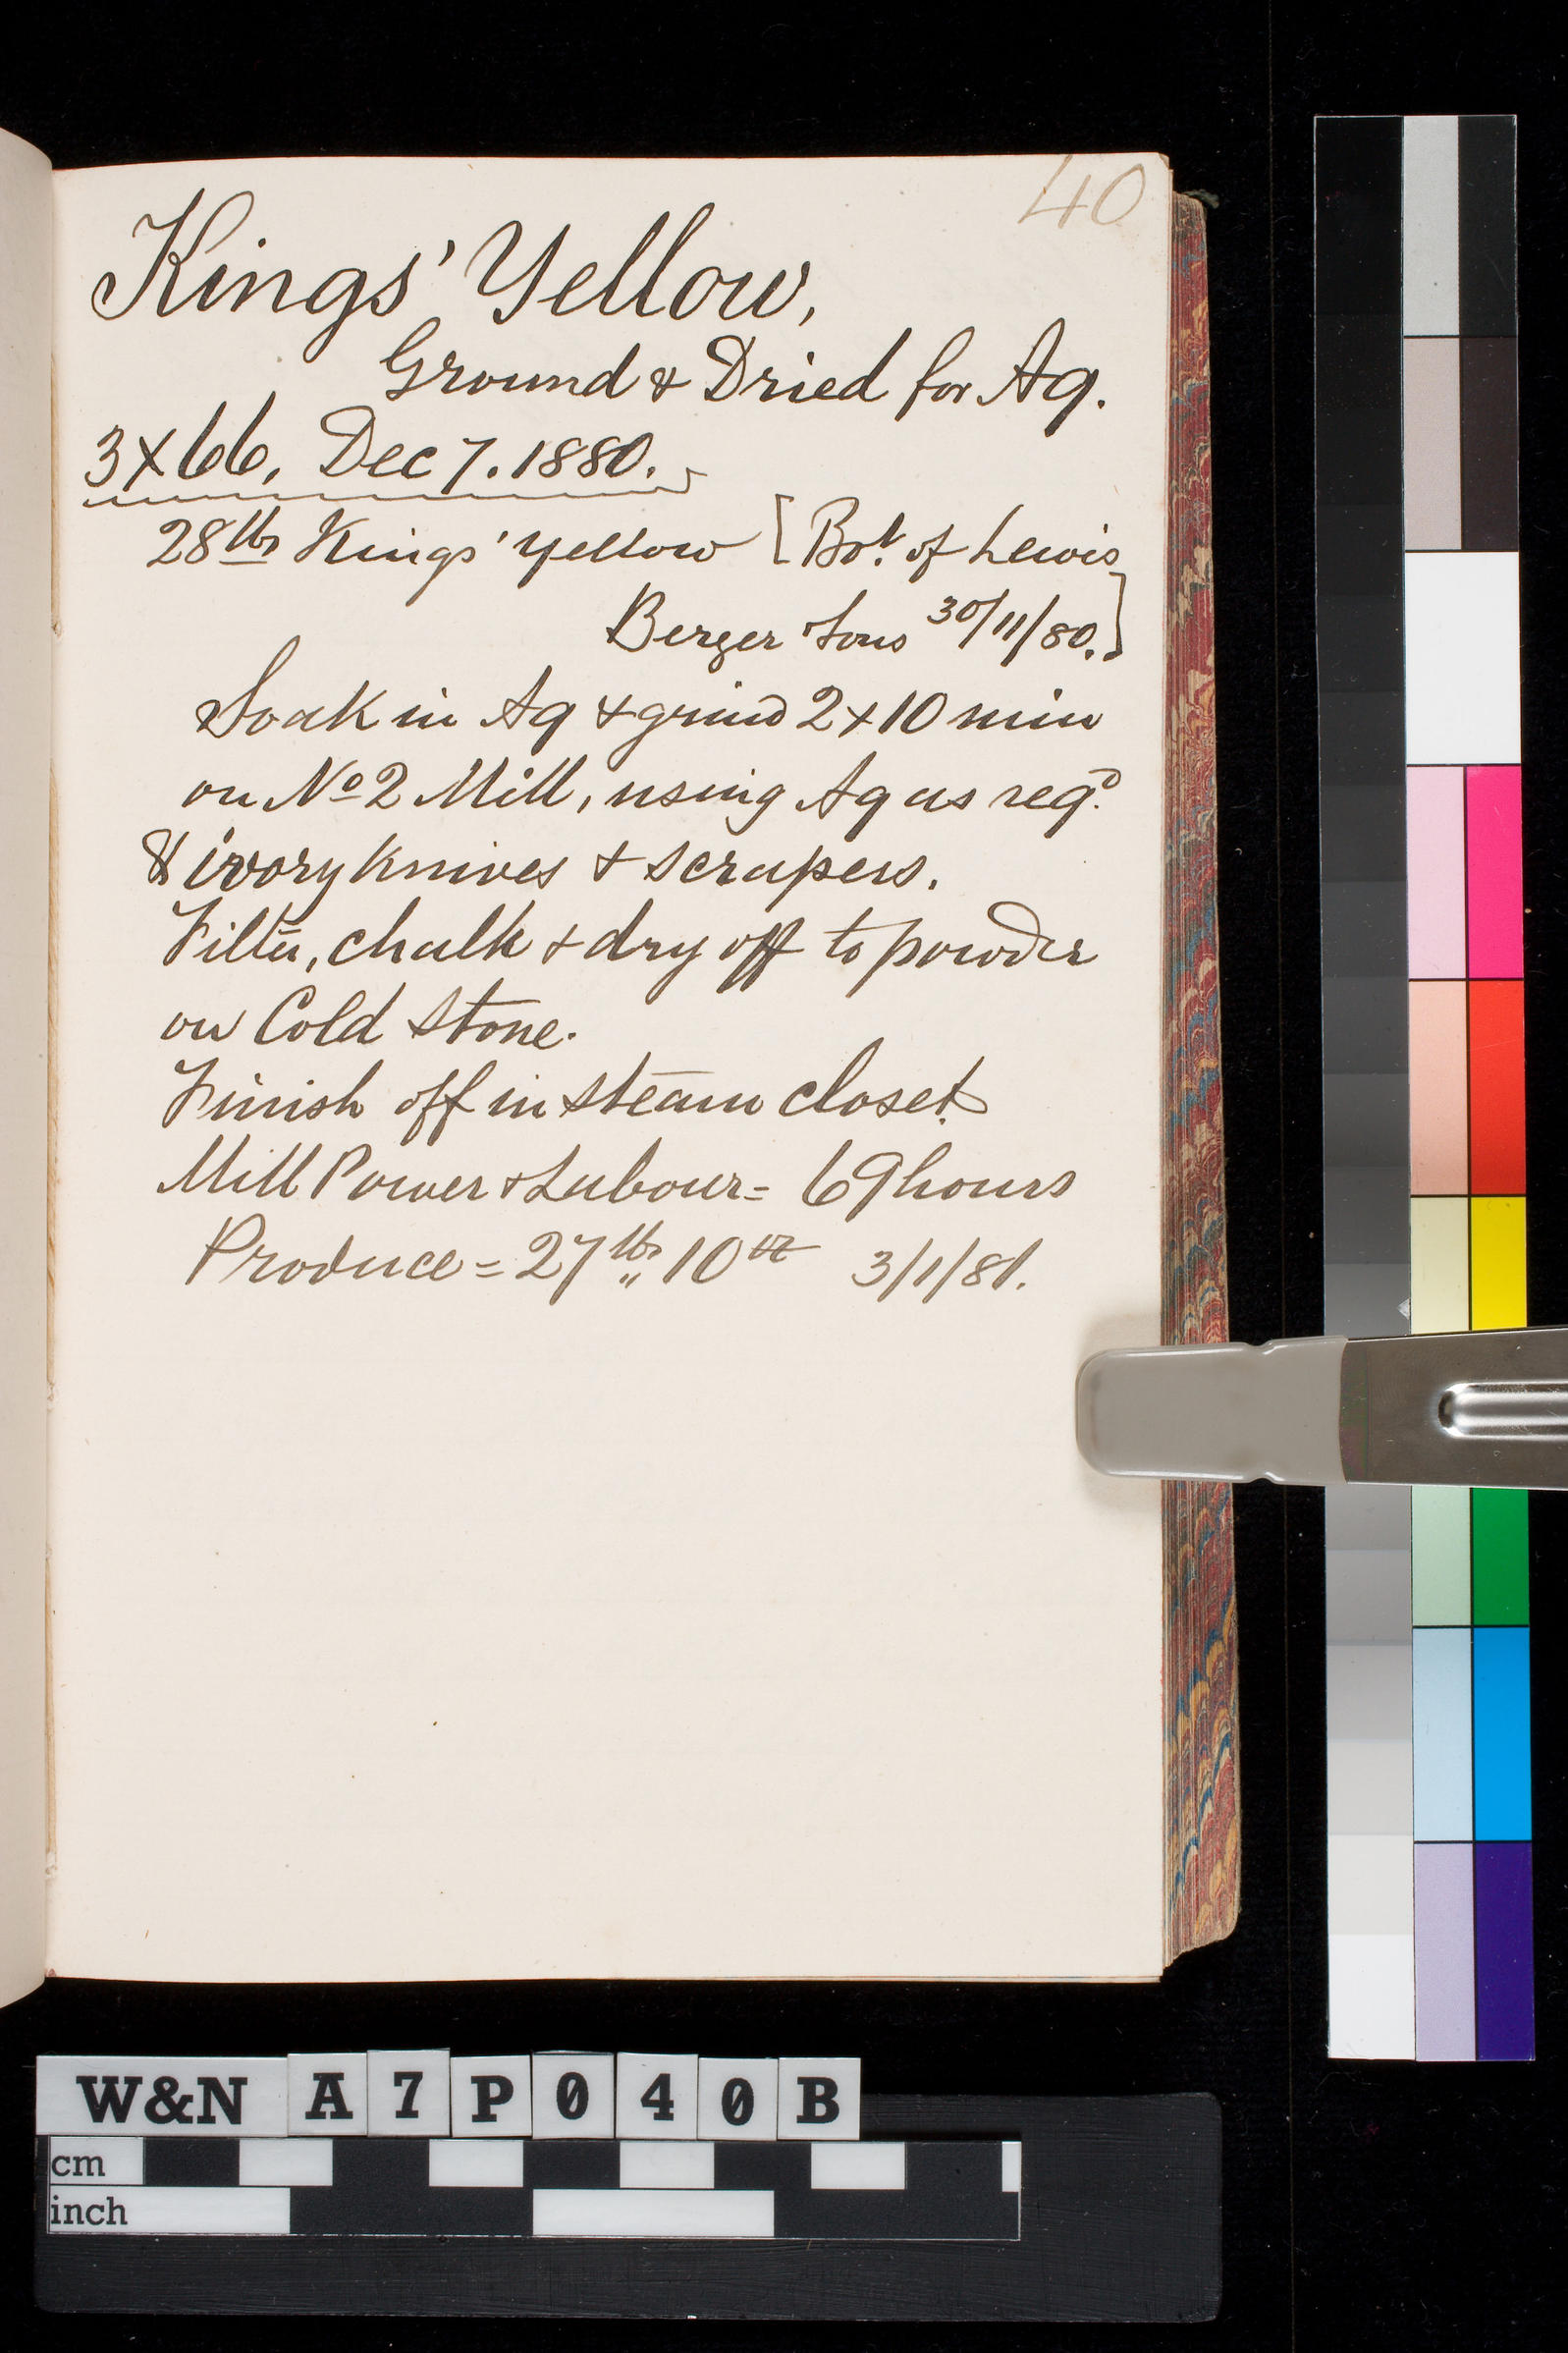 40
Kings' Yellow,
Ground & Dried for Aq.
3X66, Dec 7. 1880.
28 lbs Kings' Yellow [Bot. of Lewis
Berger Sons 30/11/80.]
Soak in Aq & grind 2x10 min
on No 2 Mill, using Aq as reqd.
& ivory knives & scrapers.
Filter, chalk & dry off to powder
on Cold Stone.
Finish off in steam closet.
Mill Power & Labour = 69 hours
Produce = 27 lbs 10 oz 3/1/81.
W&N A7P040B
cm
inch